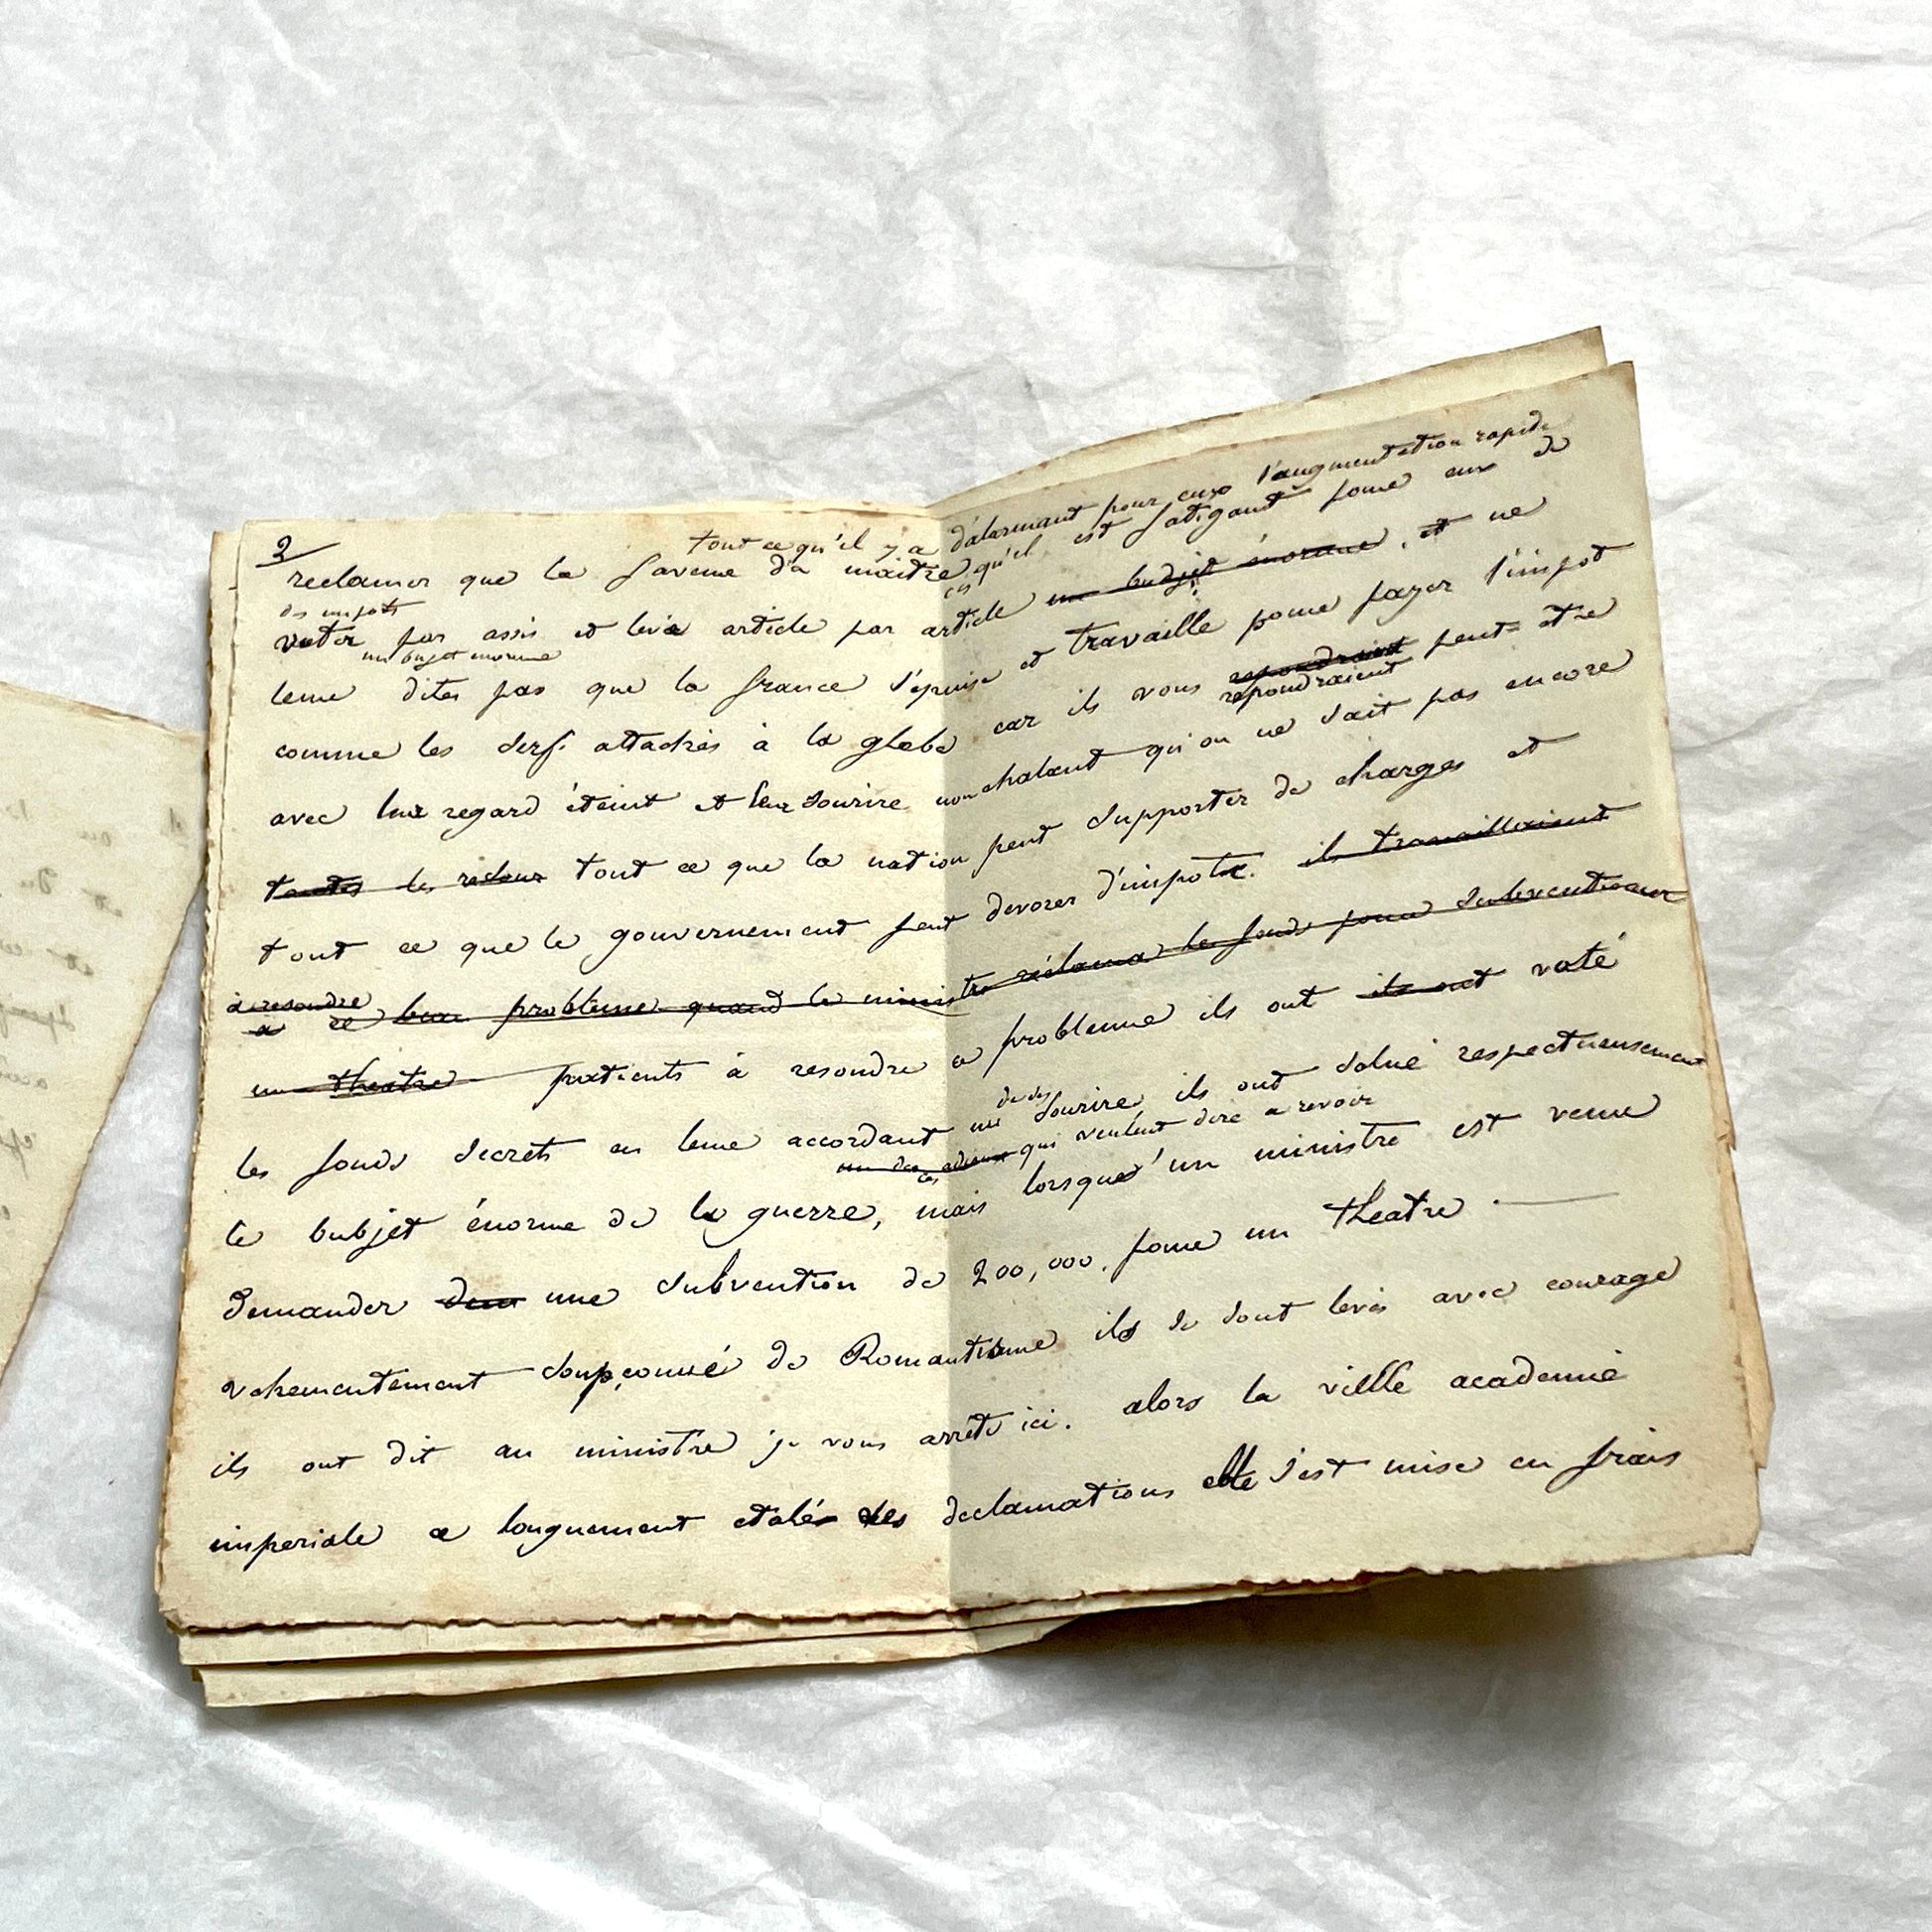 3
tout ce qu'il y a d'alarmant pour eux l'augmentation rapide
reclamer que la faveur d'a maitre ces qu'il est fatigant pour eux de
des impots
voter par assis et levé article par article un budjet énorme, et ne
un bujet énorme
leur dites pas que la france s'épuise et travaille pour payer l'impot
comme les serfs attachés à la glebe car ils vous repondraient peut-etre
repondraient
avec leur regard éteint et leur sourire nonchalant qu'on ne sait pas encore
toutes les tout ce que la nation peut supporter de charges et
tout ce que le gouvernement peut devorer d'impots. ils travaillaient
à resoudre
a ce beau problème quand le ministre réclama les fonds pour subventionner
un theatre patients à resoudre ce problemme ils ont ils ont voté
de ses
les fonds secrets en leur accordant un sourire ils ont salué respectueusement
un des ces adieux qui veulent dire a revoir
le bubjet énorme de la guerre, mais lorsque'un ministre est venu
demander une subvention de 200,000. pour un theatre
vehementement soupçonné de Romantisme ils se sont levés avec courage
ils ont dit au ministre je vous arrête ici. alors la vielle academie
imperiale a longuement etalé des declamations elle s'est mise en frais